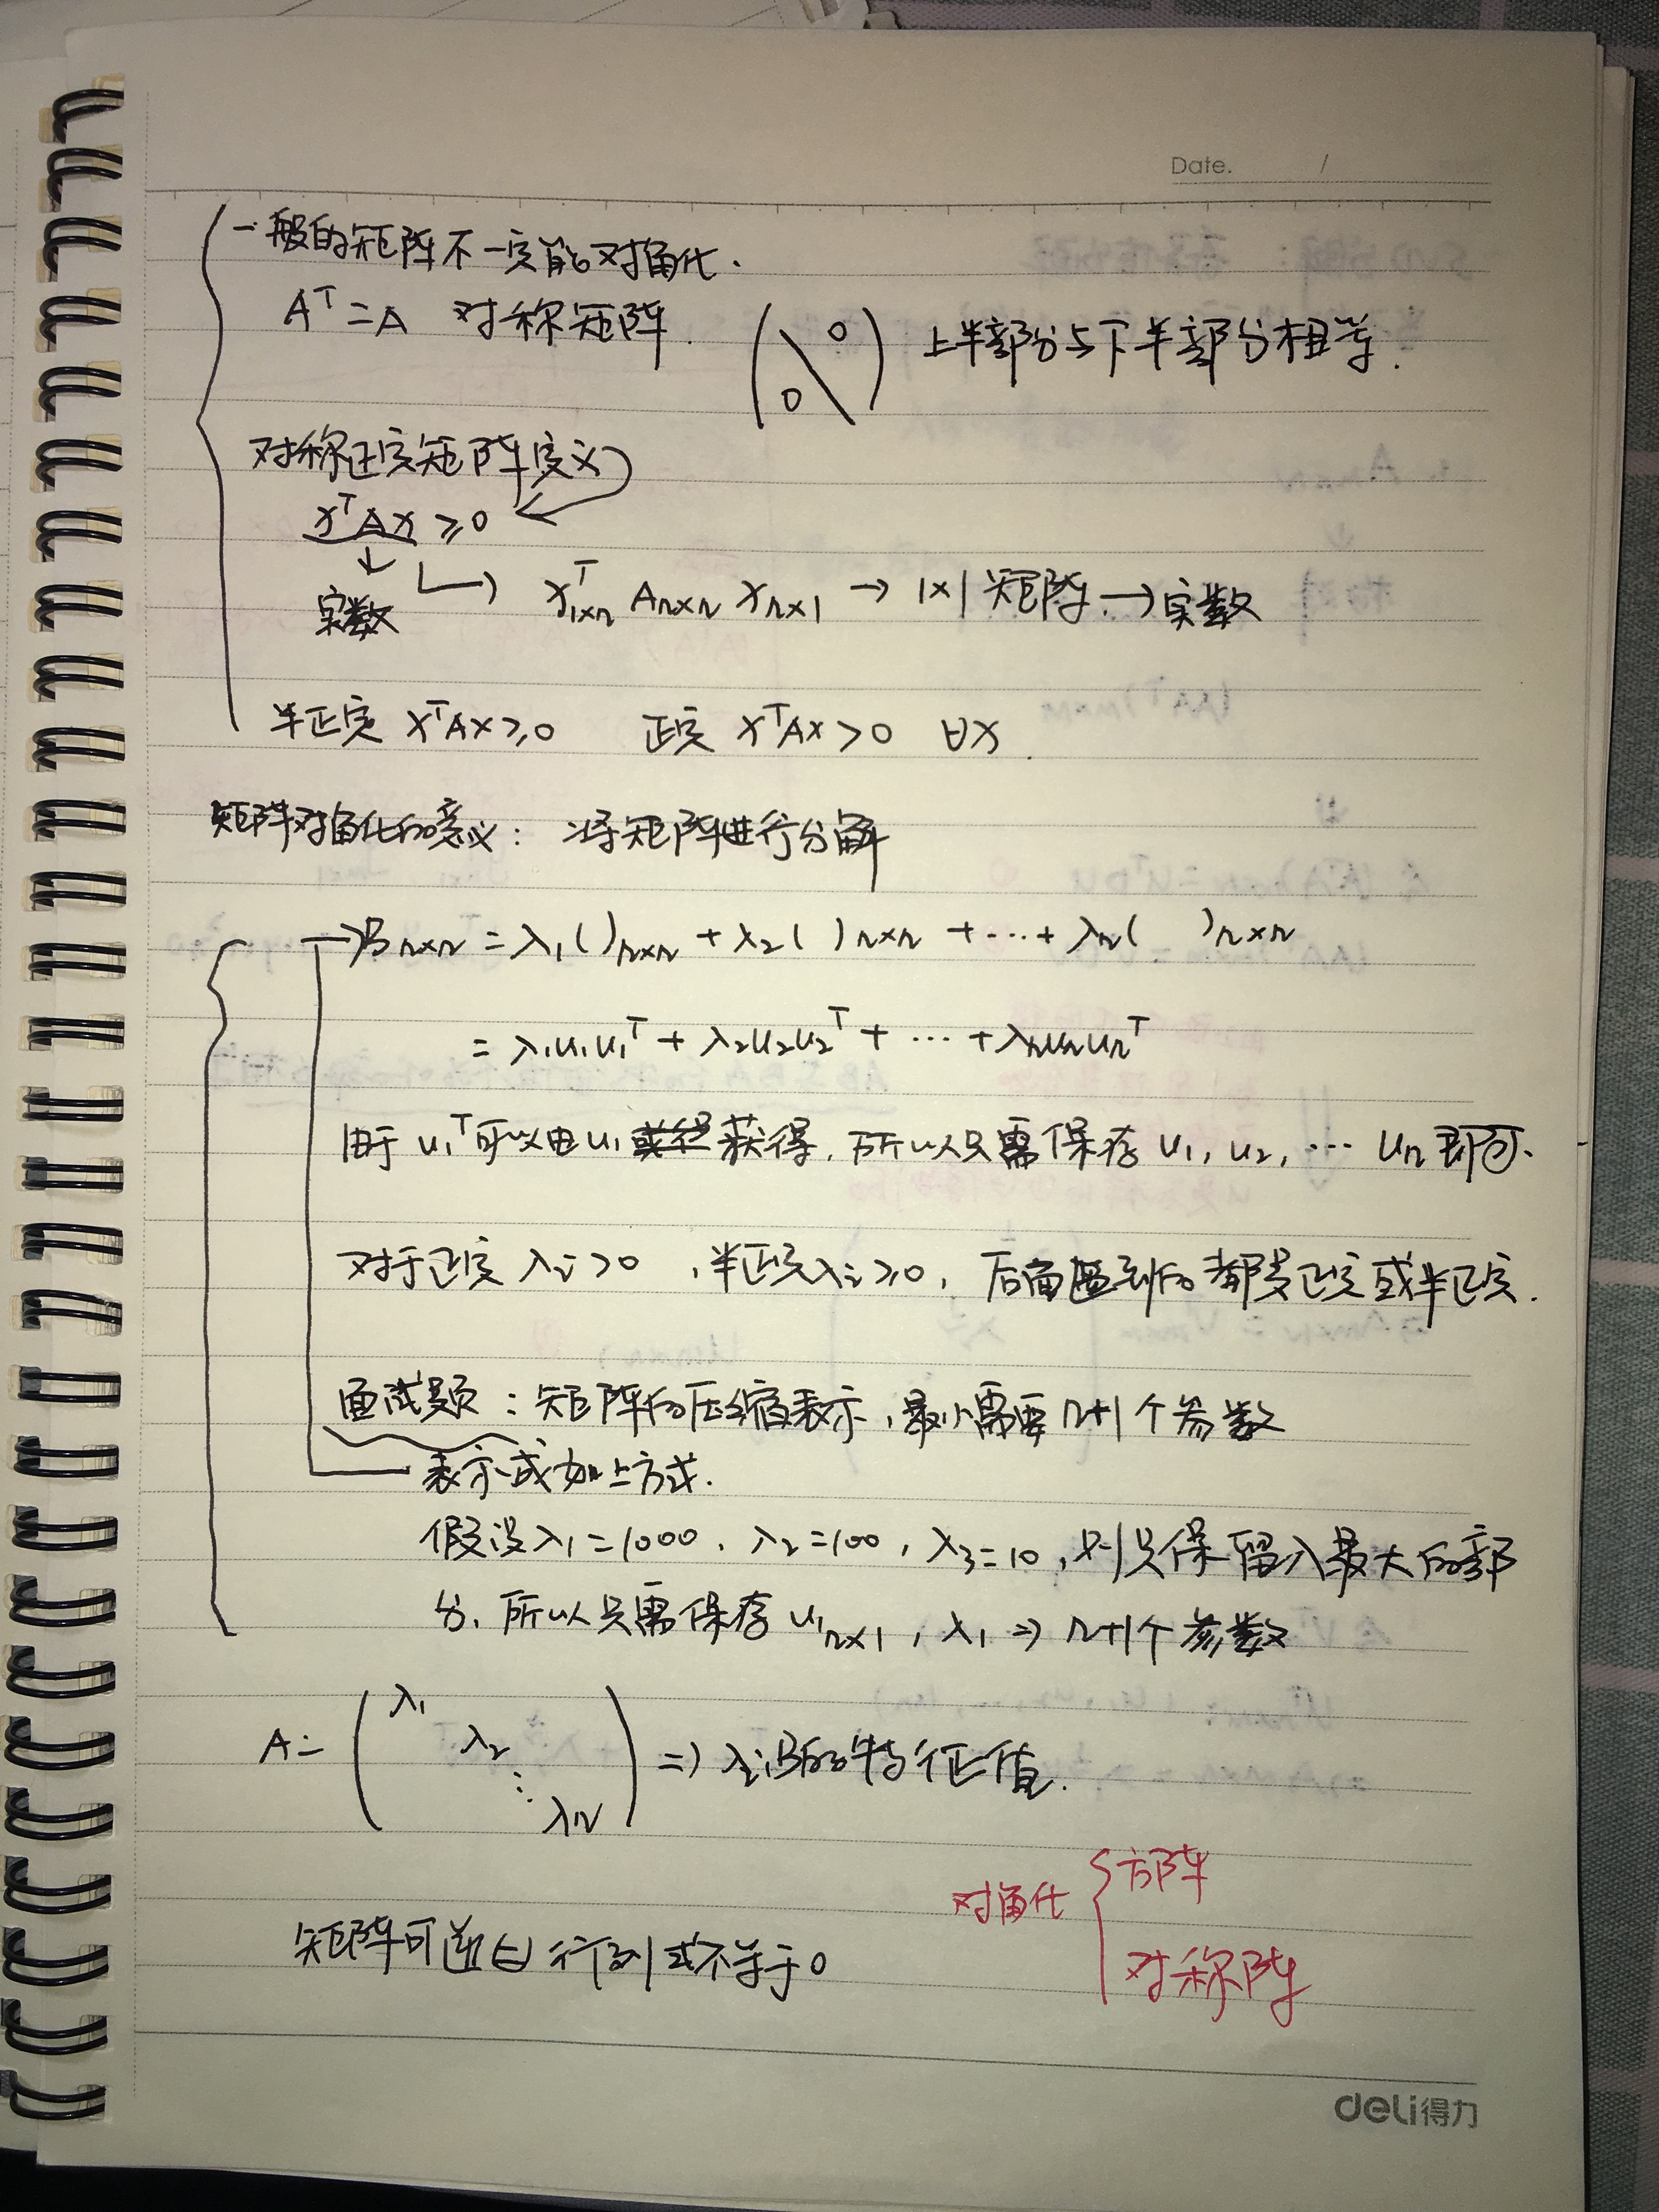 Date. /
一般的矩阵不一定能对角化.
Aᵀ=A 对称矩阵. (0 \ 0) 上半部分与下半部分相等.
对称正定矩阵定义
xᵀAx ≥0
↓
实数 ↳ xᵀ₁ₓₙ Aₙₓₙ xₙₓ₁ → 1×1矩阵 → 实数
半正定 xᵀAx≥0 正定 xᵀAx>0 ∀x.
矩阵对角化的意义: 将矩阵进行分解
→Bₙₓₙ = λ₁( )ₙₓₙ + λ₂( )ₙₓₙ + ⋯ + λₙ( )ₙₓₙ
= λ₁u₁u₁ᵀ + λ₂u₂u₂ᵀ + ⋯ + λₙuₙuₙᵀ
由于 u₁ᵀ可以由u₁获得, 所以只需保存 u₁, u₂, ⋯ uₙ 即可.
对于正定 λᵢ>0 , 半正定λᵢ≥0, 后面遇到的都是正定或半正定.
面试题: 矩阵的压缩表示, 最少需要 n+1个参数
表示成如上方式.
假设λ₁=1000, λ₂=100, λ₃=10, 则只保留λ最大的部
分, 所以只需保存u₁ₙₓ₁, λ₁ ⇒ n+1个参数
A= (λ₁ λ₂ ⋱ λₙ) ⇒ λᵢ:B的特征值.
对角化 { 方阵
对称阵
矩阵可逆⇔行列式不等于0
deli得力